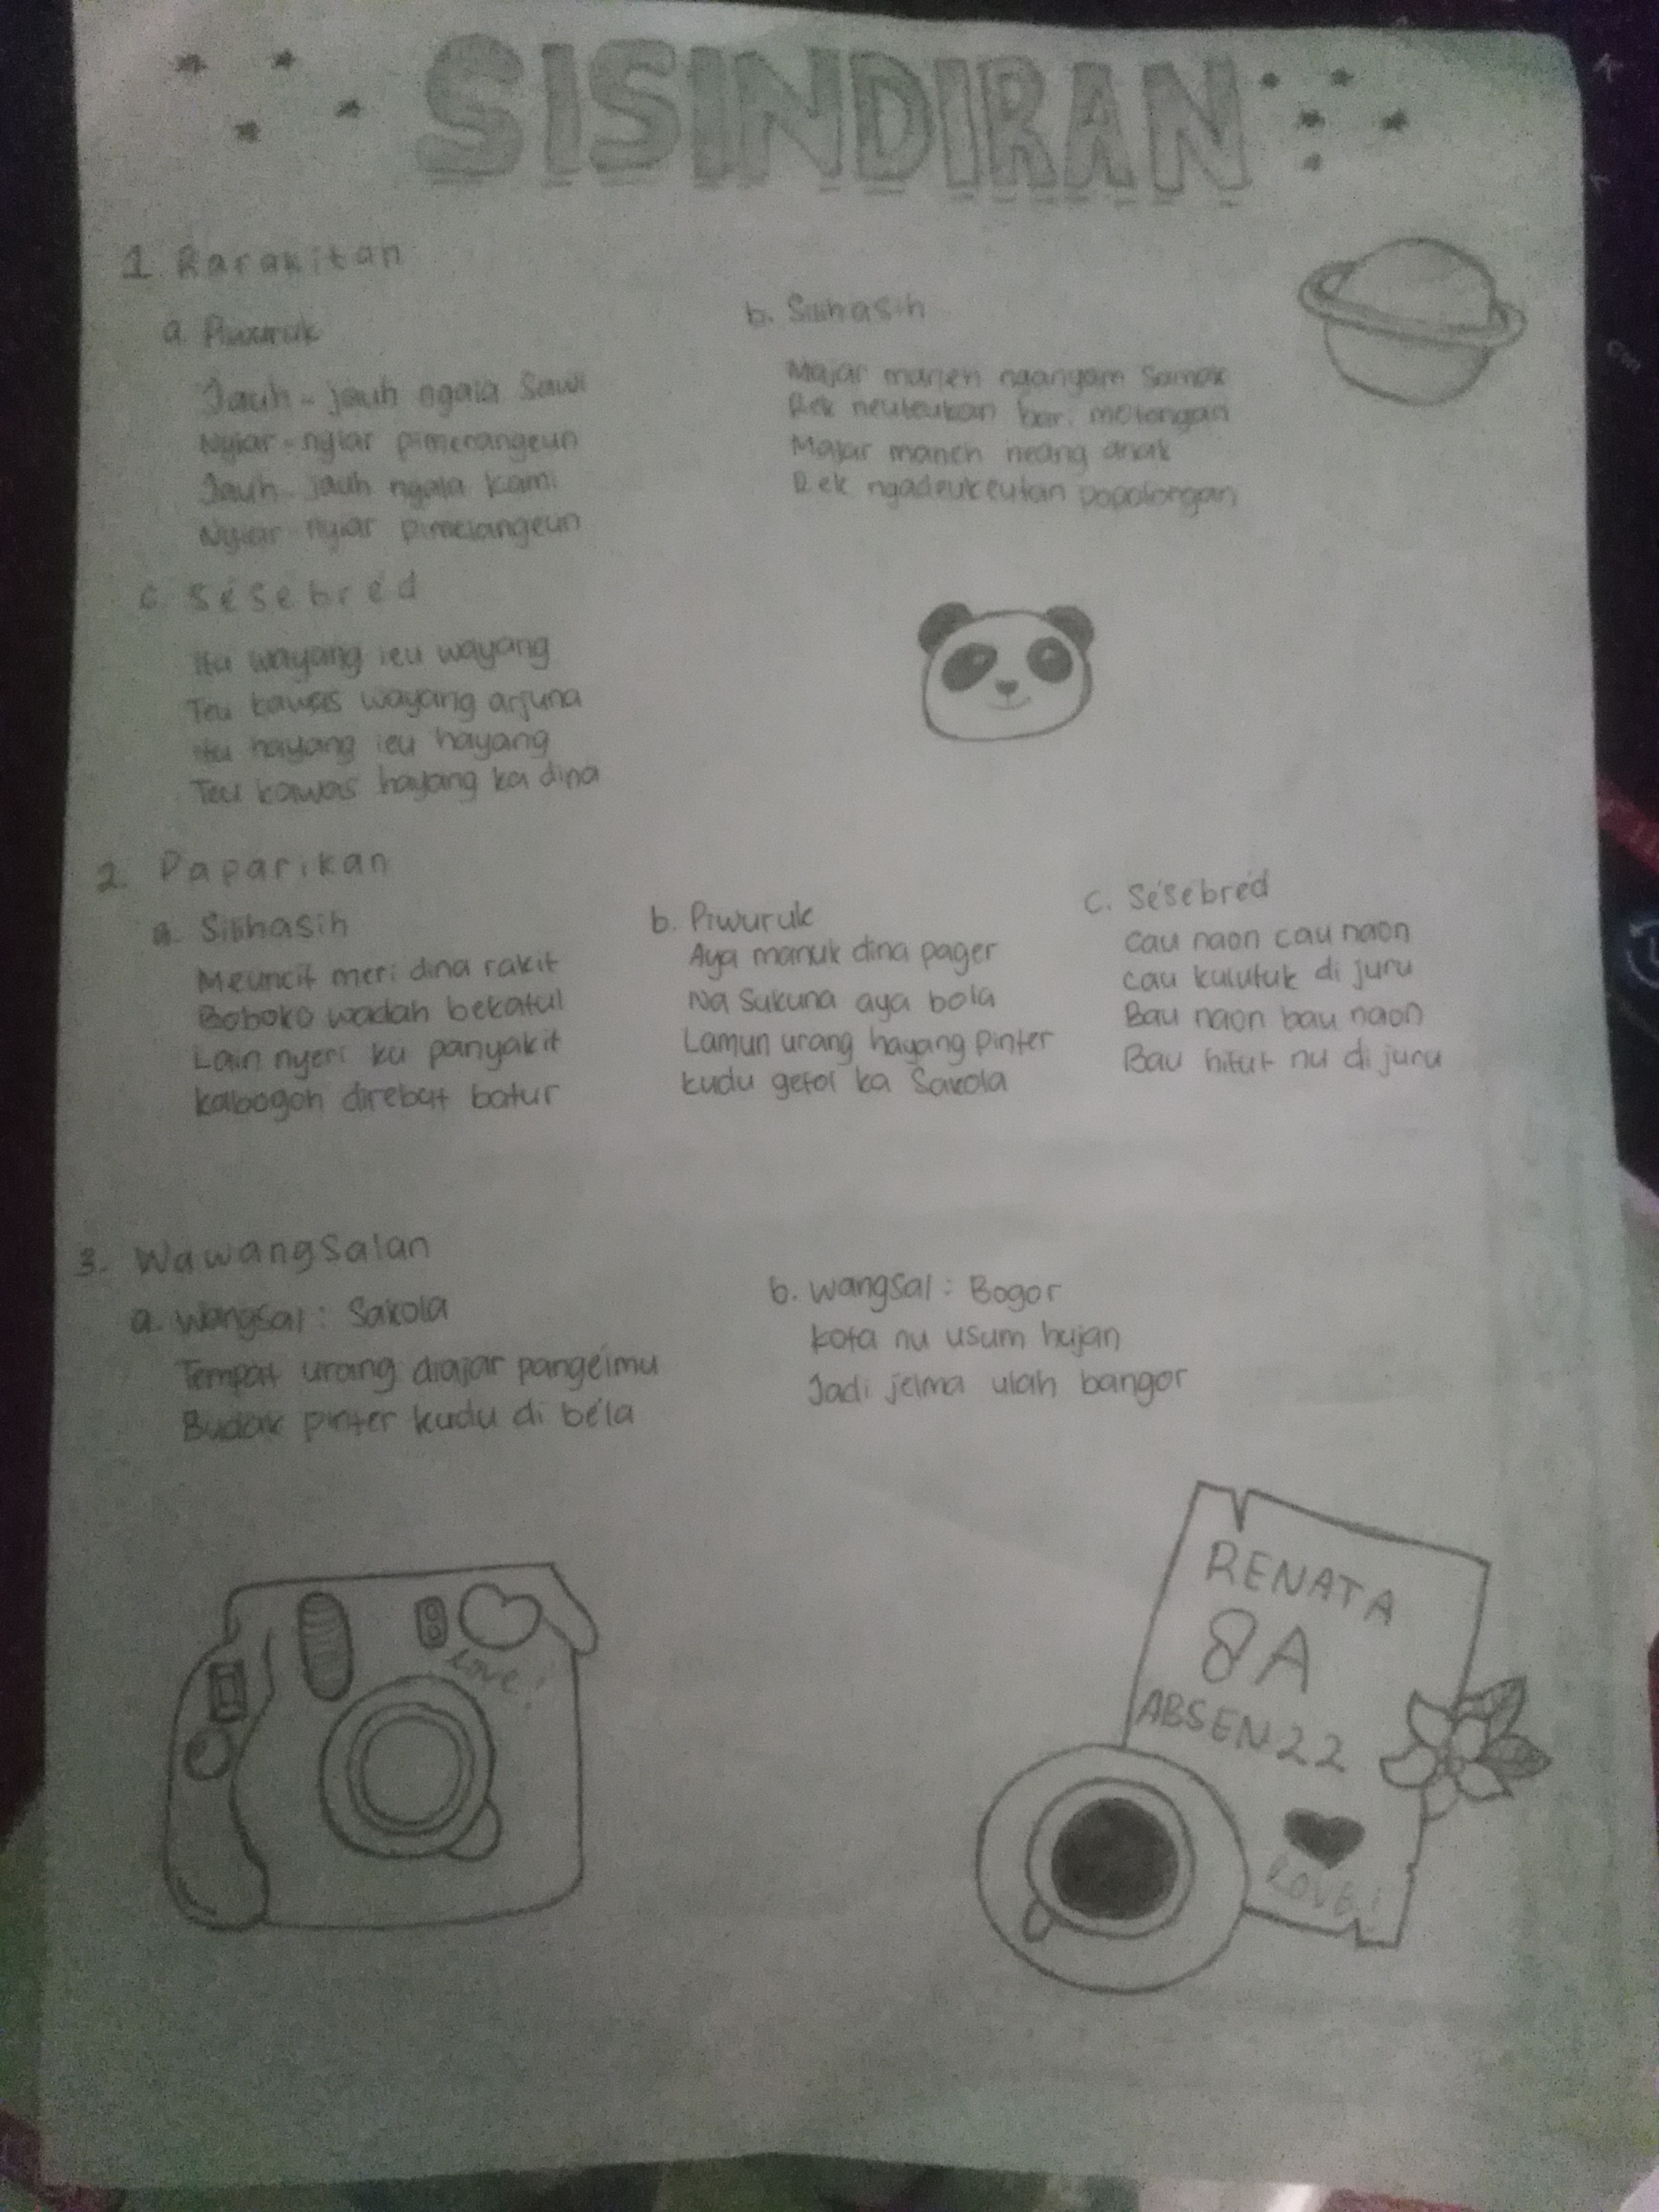 SISINDIRAN
1. Rarakitan
a. Piwuruk
Jauh-jauh ngala sawi
Nyiar-nyiar pimerangeun
Jauh-jauh ngala kami
Nyiar-nyiar pimelangeun
b. Silihasih
Majar maneh nganyam Samak
Rek neukteukan bari motongan
Majar maneh neang anak
Rek ngadeukeutan popotongan
c. Sésebréd
Itu wayang ieu wayang
Teu kawas wayang arjuna
Itu hayang ieu hayang
Teu kawas hayang ka dina
2. Paparikan
a. Silihasih
Meuncit meri dina rakit
Boboko wadah bekatul
Lain nyeri ku panyakit
kabogoh direbut batur
b. Piwuruk
Aya manuk dina pager
Na Sukuna aya bola
Lamun urang hayang pinter
kudu getol ka Sakola
c. Sésebréd
Cau naon cau naon
cau kulutuk di juru
Bau naon bau naon
Bau hitut nu di juru
3. Wawangsalan
a. Wangsal : Sakola
Tempat urang diajar pangelmu
Budak pinter kudu di béla
b. Wangsal : Bogor
kota nu usum hujan
Jadi jelma ulah bangor
Love!
RENATA
8A
ABSEN 22
LOVE!